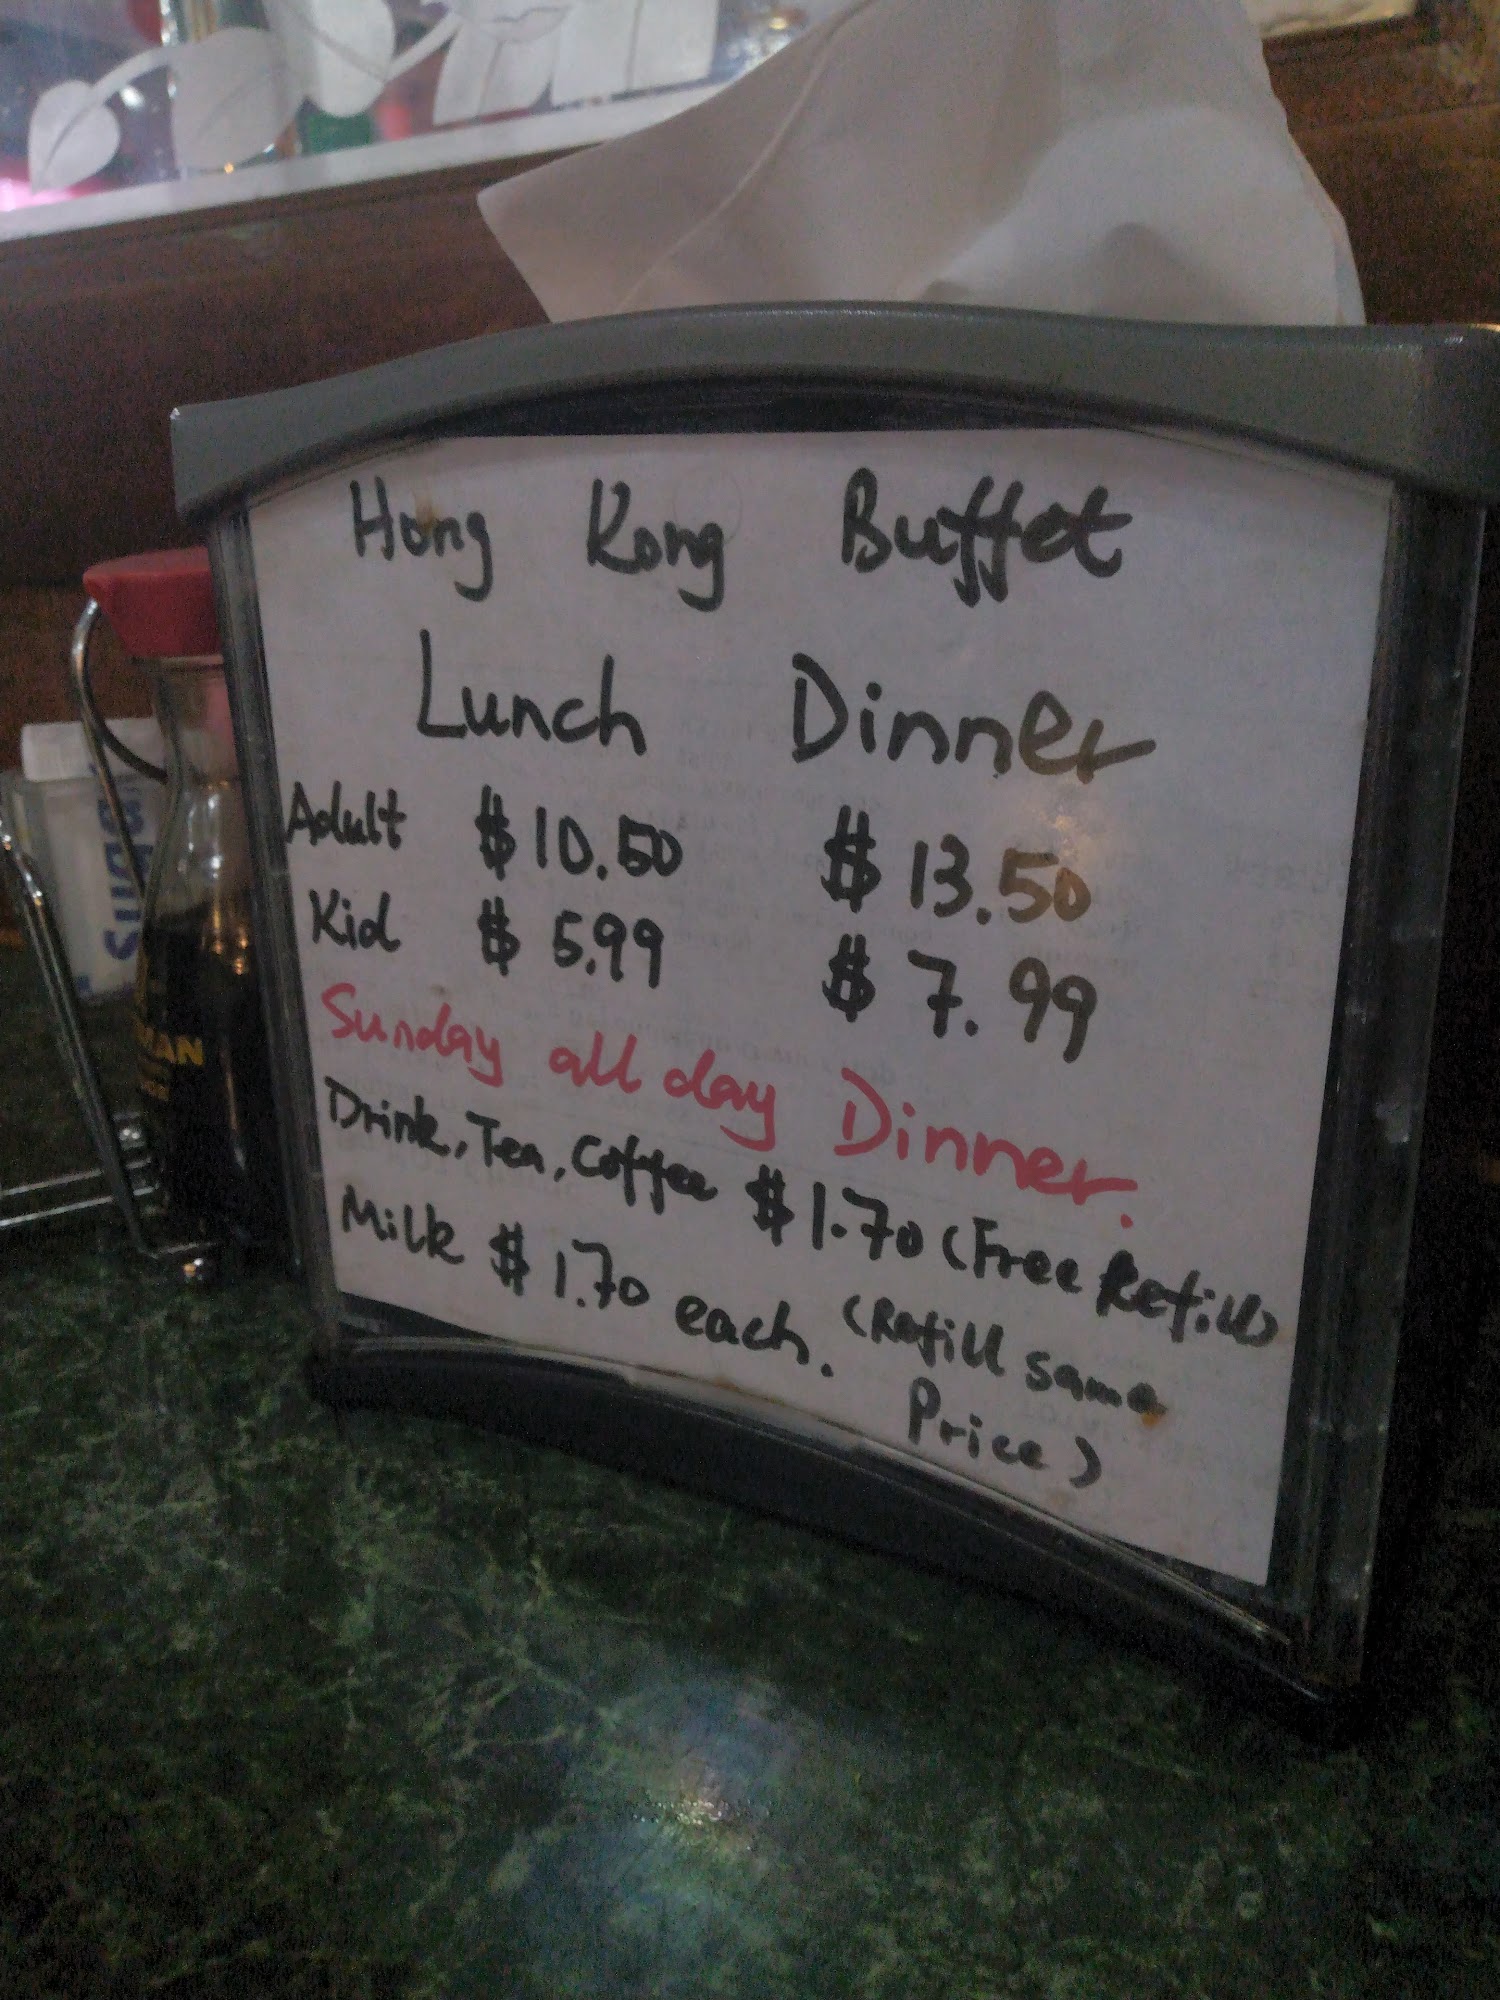 Hong Kong Buffet
Lunch Dinner
Adult $10.50 $13.50
Kid $5.99 $7.99
Sunday all day Dinner.
Drink, Tea, Coffee $1.70 (Free Refill)
Milk $1.70 each. (Refill same
Price)
Sugar
MAN